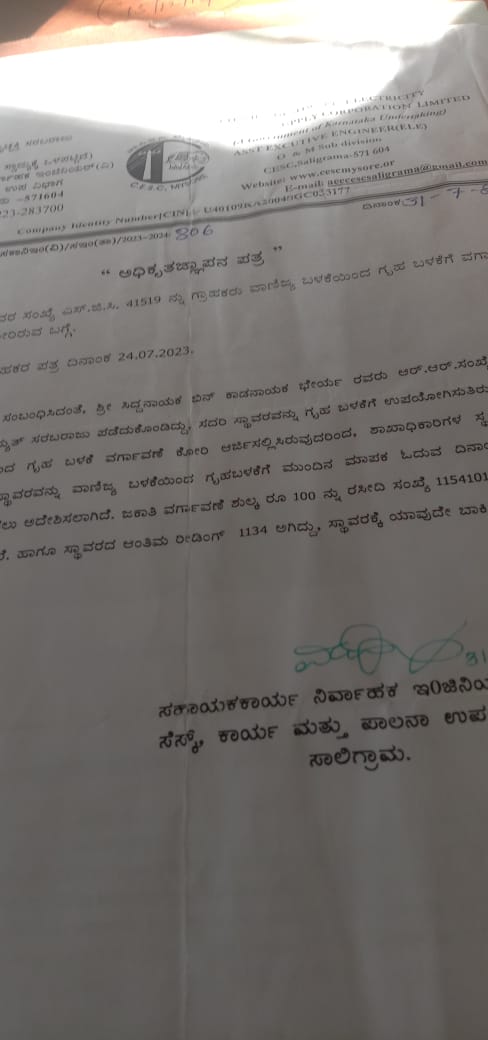 ELECTRICITY
SUPPLY CORPORATION LIMITED
(A Government of Karnataka Undertaking)
ASST EXCUTIVE ENGINEER(ELE)
O & M Sub division
CESC,Saligrama-571 604
Website: www.cescmysore.or
E-mail: aeecescsaligrama@gmail.com
ಉಪ ವಿಭಾಗ
-571604
223-283700
C.E.S.C, MYSORE
Company Identity Number[CIN]:- U40109KA2004SGC033177
/2023-2024: 806
ದಿನಾಂಕ 31-7-
“ ಅಧಿಕೃತಜ್ಞಾಪನ ಪತ್ರ ”
ವರ ಸಂಖ್ಯೆ ಎಸ್.ಜಿ.ಸಿ. 41519 ನ್ನು ಗ್ರಾಹಕರು ವಾಣಿಜ್ಯ ಬಳಕೆಯಿಂದ ಗೃಹ ಬಳಕೆಗೆ ವರ್ಗಾ
ೋರಿರುವ ಬಗ್ಗೆ.
ಾಹಕರ ಪತ್ರ ದಿನಾಂಕ 24.07.2023.
ಸಂಬಂಧಿಸಿದಂತೆ, ಶ್ರೀ ಸಿದ್ದನಾಯಕ ಬಿನ್ ಕಾಡನಾಯಕ ಭೇರ್ಯ ರವರು ಆರ್.ಆರ್.ಸಂಖ್ಯೆ
ದ್ಯುತ್ ಸರಬರಾಜು ಪಡೆದುಕೊಂಡಿದ್ದು, ಸದರಿ ಸ್ಥಾವರವನ್ನು ಗೃಹ ಬಳಕೆಗೆ ಉಪಯೋಗಿಸುತಿರು
ಂದ ಗೃಹ ಬಳಕೆ ವರ್ಗಾವಣೆ ಕೋರಿ ಅರ್ಜಿಸಲ್ಲಿಸಿರುವುದರಿಂದ, ಶಾಖಾಧಿಕಾರಿಗಳ ಸ್ಥ
ಸ್ಥಾವರವನ್ನು ವಾಣಿಜ್ಯ ಬಳಕೆಯಿಂದ ಗೃಹಬಳಕೆಗೆ ಮುಂದಿನ ಮಾಪಕ ಓದುವ ದಿನಾಂ
ಲು ಆದೇಶಿಸಲಾಗಿದೆ. ಜಕಾತಿ ವರ್ಗಾವಣೆ ಶುಲ್ಕ ರೂ 100 ನ್ನು ರಸೀದಿ ಸಂಖ್ಯೆ 1154101
ೆ. ಹಾಗೂ ಸ್ಥಾವರದ ಅಂತಿಮ ರೀಡಿಂಗ್ 1134 ಆಗಿದ್ದು, ಸ್ಥಾವರಕ್ಕೆ ಯಾವುದೇ ಬಾಕಿ
31
ಸಹಾಯಕಕಾರ್ಯ ನಿರ್ವಾಹಕ ಇ0ಜಿನಿಯ
ಸೆಸ್ಕ್, ಕಾರ್ಯ ಮತ್ತು ಪಾಲನಾ ಉಪ
ಸಾಲಿಗ್ರಾಮ.